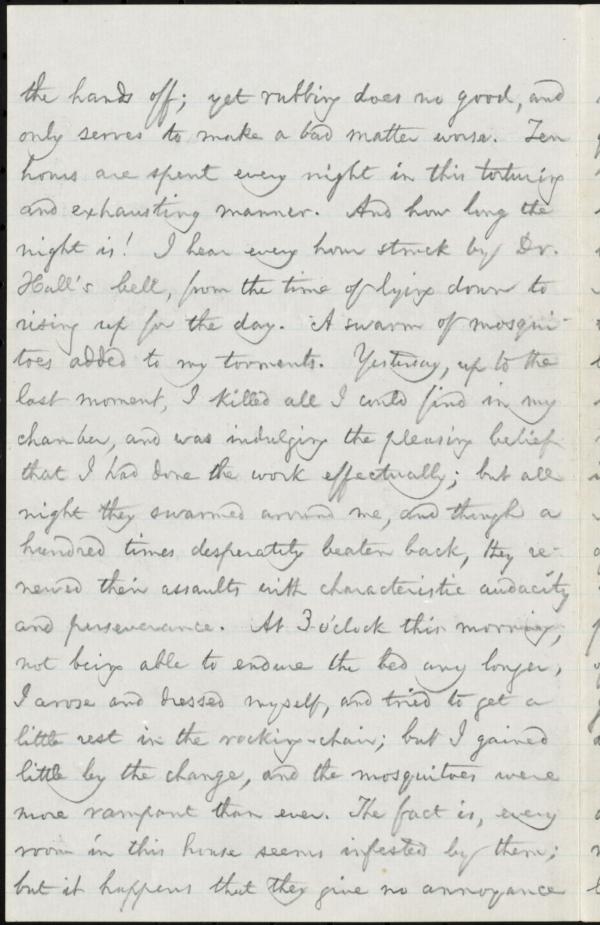 the hands off; yet rubbing does no good, and
only serves to make a bad matter worse. Ten
hours are spent every night in this torturing
and exhausting manner. And how long the
night is! I hear every hour struck by Dr.
Hall's bell, from the time of lying down to
rising up for the day. A swarm of mosqui-
toes added to my torments. Yesterday, up to the
last moment, I killed all I could find in my
chamber, and was indulging the pleasing belief
that I had done the work effectually; but all
night they swarmed around me, and though a
hundred times desperately beaten back, they re-
newed their assaults with characteristic audacity
and perseverance. At 3 o'clock this morning,
not being able to endure the bed any longer,
I arose and dressed myself, and tried to get a
little rest in the rocking-chair; but I gained
little by the change, and the mosquitoes were
more rampant than ever. The fact is, every
room in this house seems infested by them;
but it happens that they give no annoyance